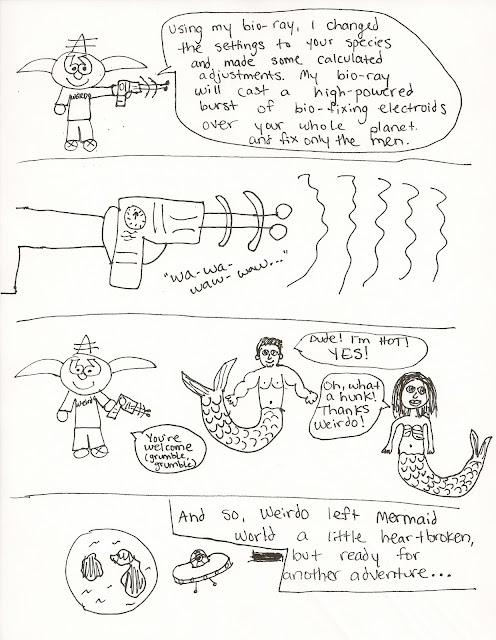 Using my bio-ray, I changed
the settings to your species
and made some calculated
adjustments. My bio-ray
will cast a high-powered
burst of bio-fixing electroids
over your whole planet.
and fix only the men.
WEIRDO
"wa-wa-
waw-waw..."
Dude! I'm HOT!
YES!
Oh, what
a hunk!
Thanks
Weirdo!
Weirdo
You're
welcome
(grumble,
grumble)
And so, Weirdo left Mermaid
World a little heartbroken,
but ready for
another adventure...